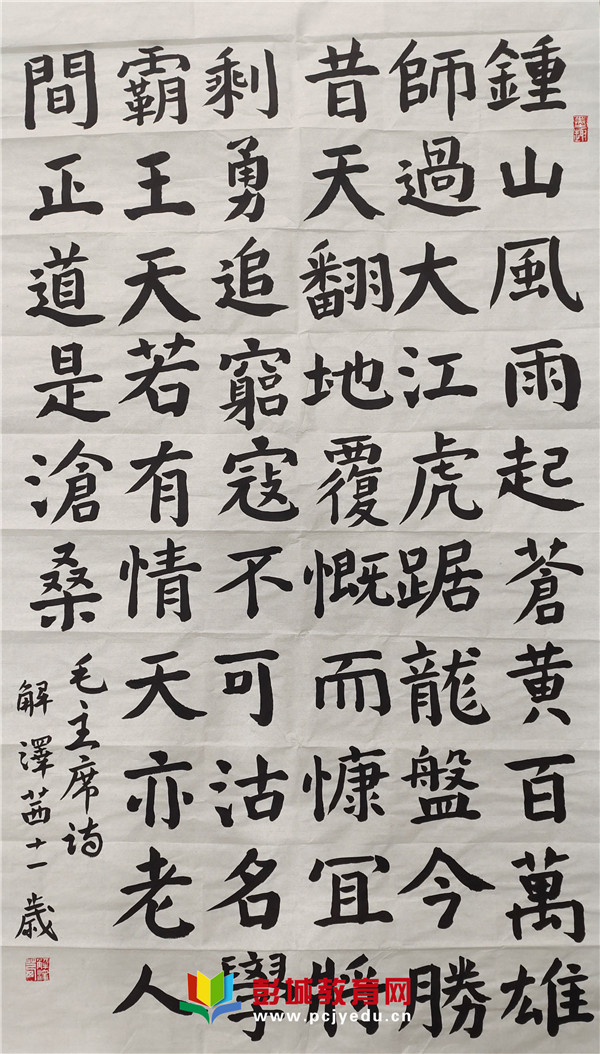 鍾山風雨起蒼黄百萬雄
師過大江虎踞龍盤今勝
昔天翻地覆慨而慷冝將
剩勇追窮寇不可沽名學
霸王天若有情天亦老人
間正道是滄桑
毛主席詩
解澤茜十一歲
彭城教育网
www.pcjyedu.cn